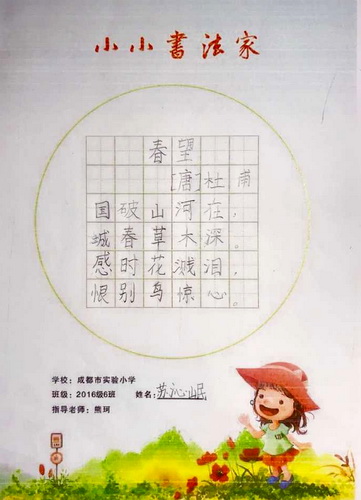 小小書法家
春望
[唐]杜甫
国破山河在,
城春草木深。
感时花溅泪,
恨别鸟惊心。
学校：成都市实验小学
班级：2016级6班 姓名：苏沁岷
指导老师：熊珂